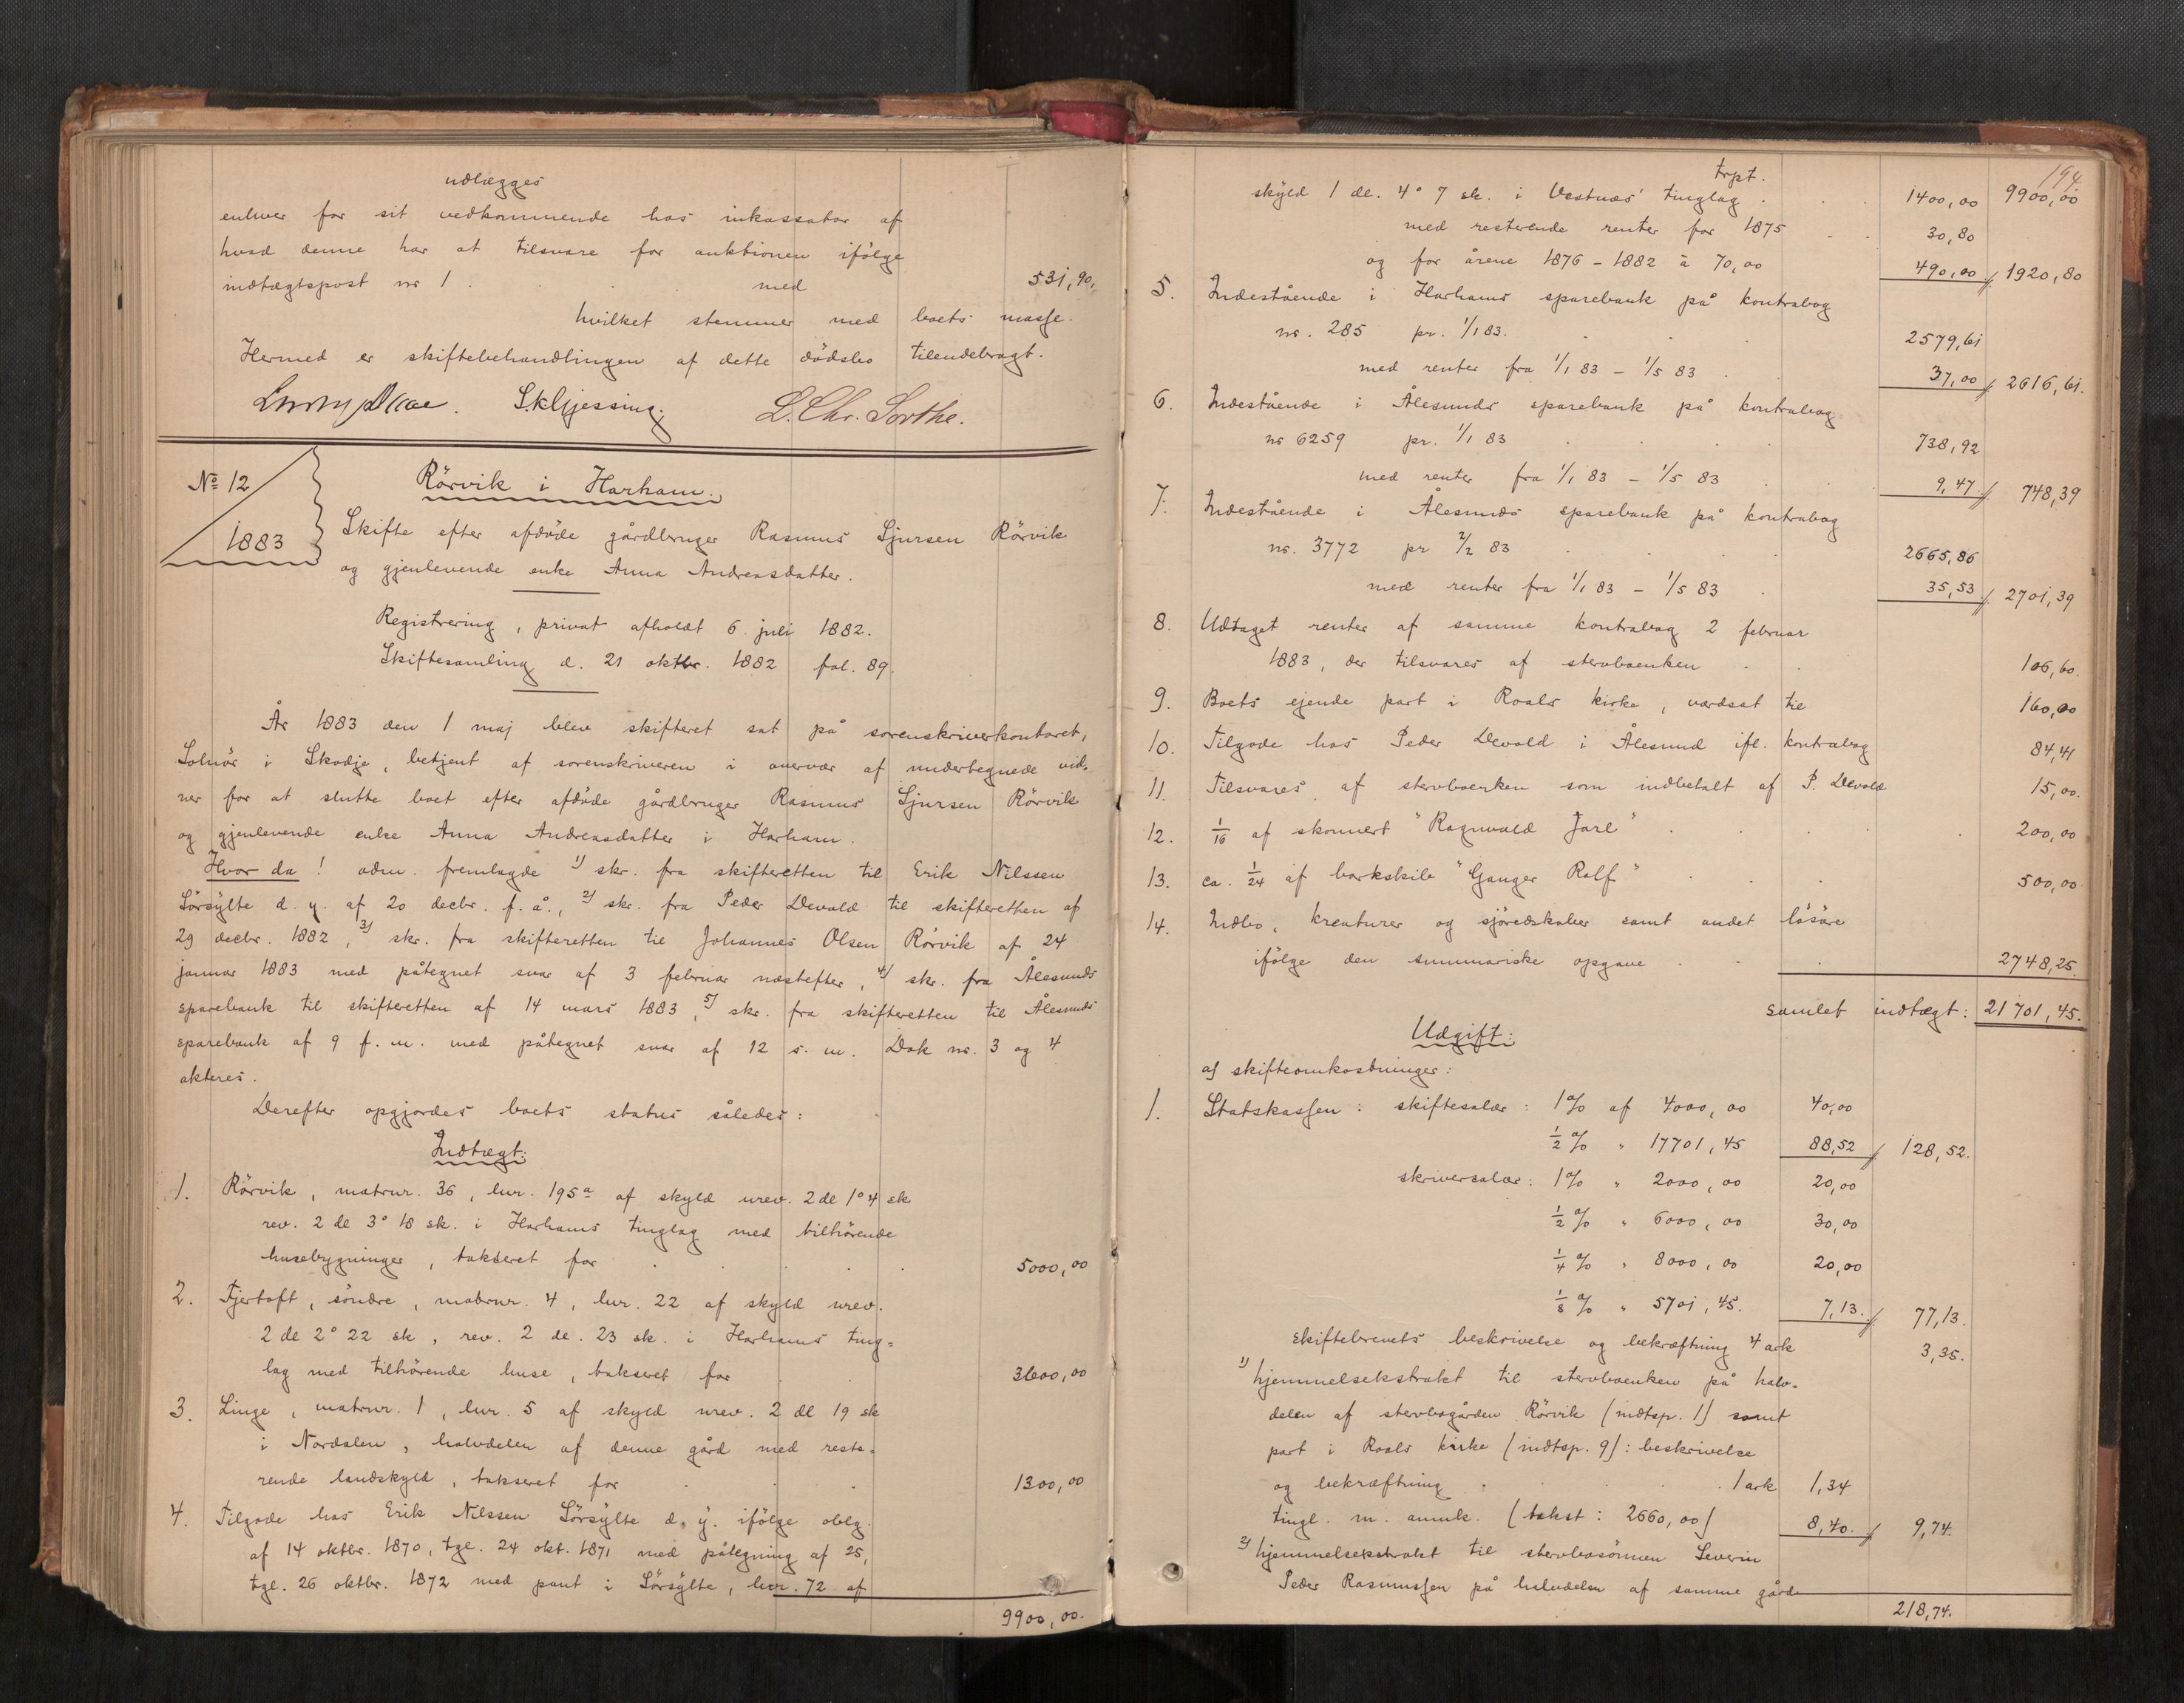 udlægges
enhver for sit vedkommende hos inkassator af
hvad denne har at tilsvare for auktionen ifölge
indtægtspost nr 1 . . . med 531,90.
hvilket stemmer med boets masse.
Hermed er skiftebehandlingen af dette dödsbo tilendebragt.
S.k.Gjessing. L. Chr. Sorthe.
No 12
1883
Rörvik i Harham.
Skifte efter afdöde gårdbruger Rasmus Sjursen Rörvik
og gjenlevende enke Anna Andreasdatter.
Registrering, privat afholdt 6 juli 1882.
Skiftesamling d. 21 oktbr. 1882 fol. 89.
År 1883 den 1 maj blev skifteret sat på sorenskriverkontoret,
Solnör i Skodje, betjent af sorenskriveren i overvær af undertegnede vid-
ner for at slutte boet efter afdöde gårdbruger Rasmus Sjursen Rörvik
og gjenlevende enke Anna Andreasdatter i Harham.
Hvor da! adm. fremlagde 1) skr. fra skifteretten til Erik Nilssen
Sörsylte d. y. af 20 decbr. f. å., 2) skr. fra Peder Devold til skifteretten af
29 decbr. 1882, 3) skr. fra skifteretten til Johannes Olsen Rörvik af 24
januar 1883 med påtegnet svar af 3 februar næstefter, 4) skr. fra Ålesunds
sparebank til skifteretten af 14 mars 1883, 5) skr. fra skifteretten til Ålesunds
sparebank af 9 f. m. med påtegnet svar af 12 s. m. Dok nr. 3 og 4
akteres.
Derefter opgjordes boets status således:
Indtægt:
1. Rörvik, matrnr. 36, lnr. 195a af skyld urev. 2 dl 1o 4 sk
rev. 2 dl 3o 18 sk. i Harhams tinglag med tilhörende
husebygninger, takseret for . . . 5000,00
2. Fjertoft, söndre, matrnr. 4, lnr. 22 af skyld urev.
2 dl 2o 22 sk, rev. 2 dl. 23 sk. i Harhams ting-
lag med tilhörende huse, takseret for . 3600,00
3. Linge, matrnr. 1, lnr. 5 af skyld urev. 2 dl 19 sk
i Nordalen, halvdelen af denne gård med reste-
rende landskyld, takseret for . . 1300,00
4. Tilgode hos Erik Nilssen Sörsylte d. y. ifölge oblg.
af 14 oktbr. 1870, tgl. 24 okt. 1871 med påtegning af 25,
tgl. 26 oktbr. 1872 med pant i Sörsylte, lnr. 72 af
9900,00.
194
trpt. 9900,00
skyld 1 dl. 4o 7 sk. i Vestnæs' tinglag . . 1400,00
med resterende renter for 1875 . . 30,80
og for årene 1876 - 1882 à 70,00 490,00 1920,80
5. Indestående i Harhams sparebank på kontrabog
nr. 285 pr. 1/1 83. . . 2579,61
med renter fra 1/1 83 - 1/5 83 . 37,00 2616,61.
6. Indestående i Ålesunds sparebank på kontrabog
nr 6259 pr. 1/1 83 . . . 738,92
med renter fra 1/1 83 - 1/5 83 . 9,47 748,39
7. Indestående i Ålesunds sparebank på kontrabog
nr. 3772 pr 2/2 83 . . . 2665,86
med renter fra 1/1 83 - 1/5 83 . 35,53 2701,39
8. Udtaget renter af samme kontrabog 2 februar
1883, der tilsvares af stervboenken . . 106,60.
9. Boets ejende part i Roals kirke, værdsat til 160,00
10. Tilgode hos Peder Devold i Ålesund ifl. kontrabog 84,41
11. Tilsvares af stervboenken som indbetalt af P. Devold 15,00.
12. 1/16 af skonnert "Ragnvald Jarl" . . . 200,00
13. ca. 1/24 af barkskib "Ganger Rolf" . . . 500,00
14. Indbo, kreaturer og sjöredskaber samt andet lösöre
ifölge den summariske opgave . . . 2748,25.
samlet indtægt: 21701,45.
Udgift:
a) skifteomkostninger:
1. Statskassen: skiftesalær: 1% af 4000,00 40,00
1/2 % " 17701,45 88,52 128,52.
skriversalær: 1% " 2000,00 20,00
1/2 % " 6000,00 30,00
1/4 % " 8000,00 20,00
1/8 % " 5701,45. 7,13. 77,13.
skiftebrevets beskrivelse og bekræftning 4 ark 3,35.
1) hjemmelsekstrakt til stervboenken på halv-
delen af stervbogården Rörvik (indtsp. 1) samt
part i Roals kirke (indtsp. 9): beskrivelse
og bekræftning . . . 1 ark 1,34
tingl. m. anmk. (takst: 2660,00) 8,40. 9,74.
2) hjemmelsekstrakt til stervbosönnen Severin
Peder Rasmussen på halvdelen af samme gård
218,74.